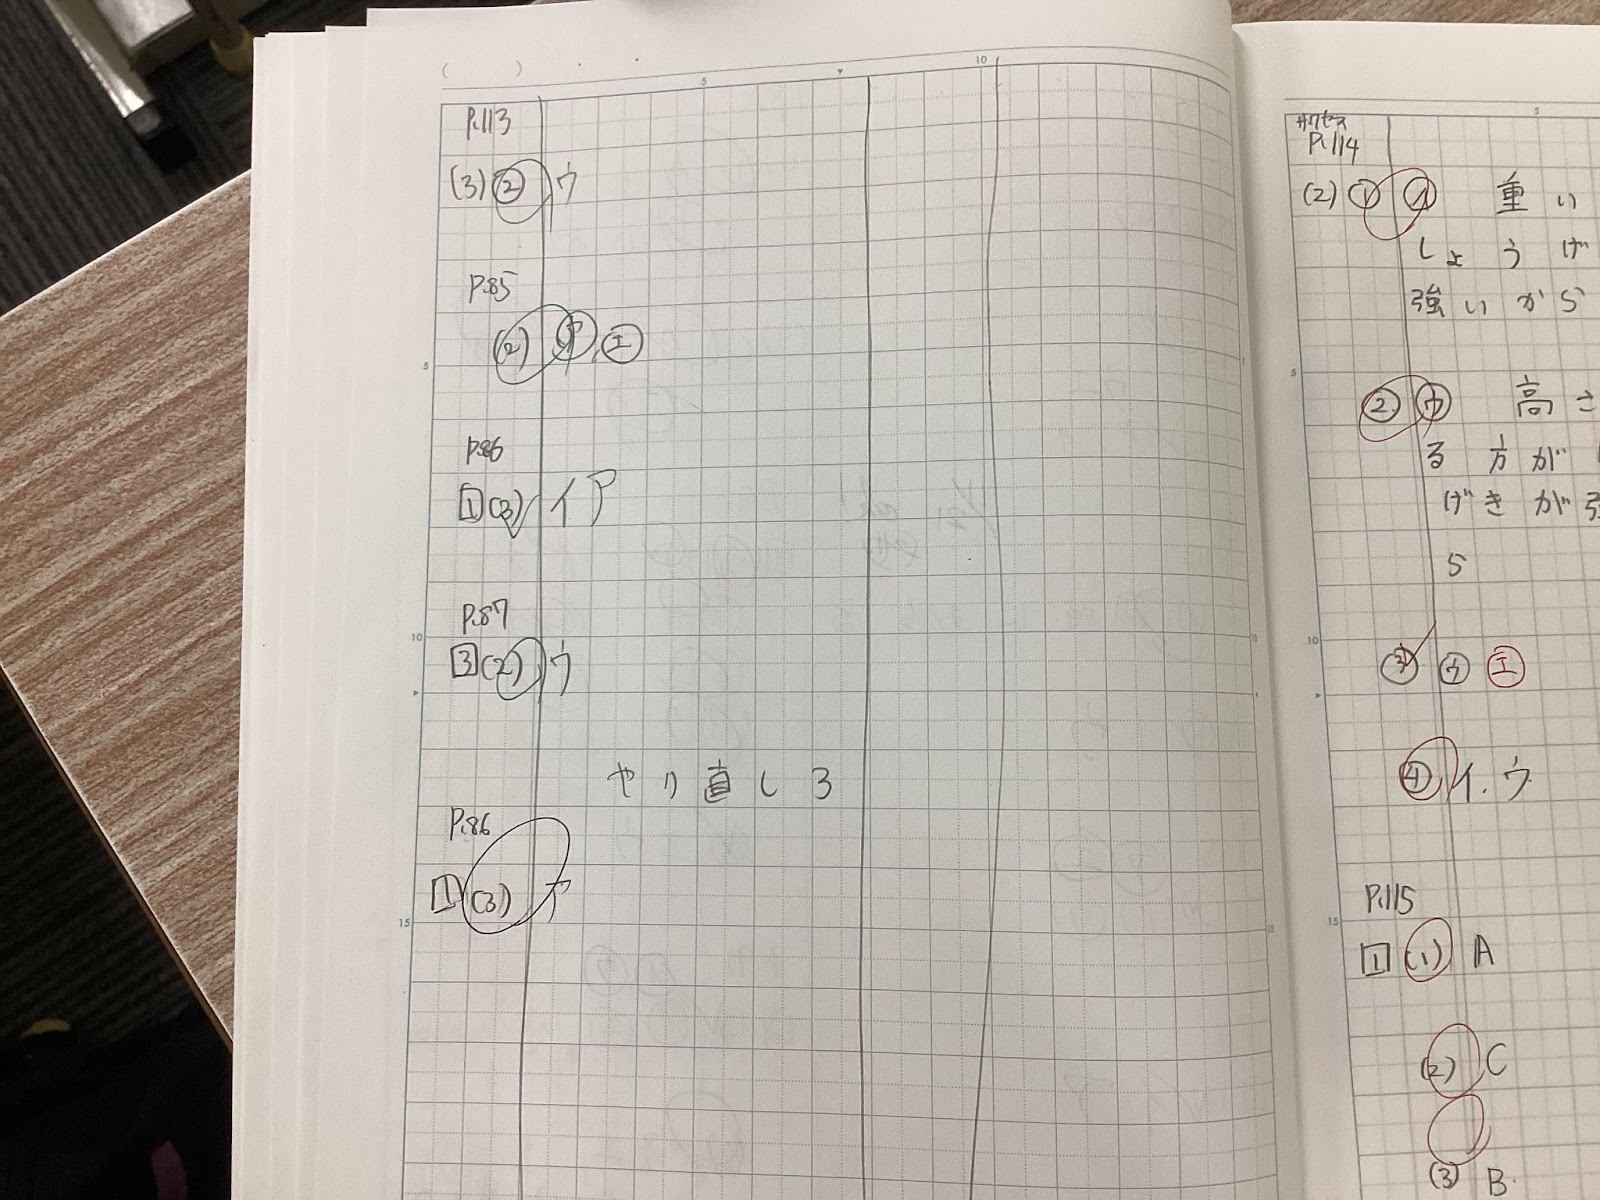 P.113
(3)② ウ
P.85
(2) ㋐.㋓
P.86
1(3) イ ア
P.87
3(2) ウ
やり直し3
P.86
1(3) ア
P.114
(2)① 重い
しょうげ
強いから
② ㋒ 高さ
る方が
げきが強
ら
③ ㋒ ㋓
④ イ.ウ
P.115
1(1) A
(2) C
(3) B.
5
10
5
10
15
5
5
10
15